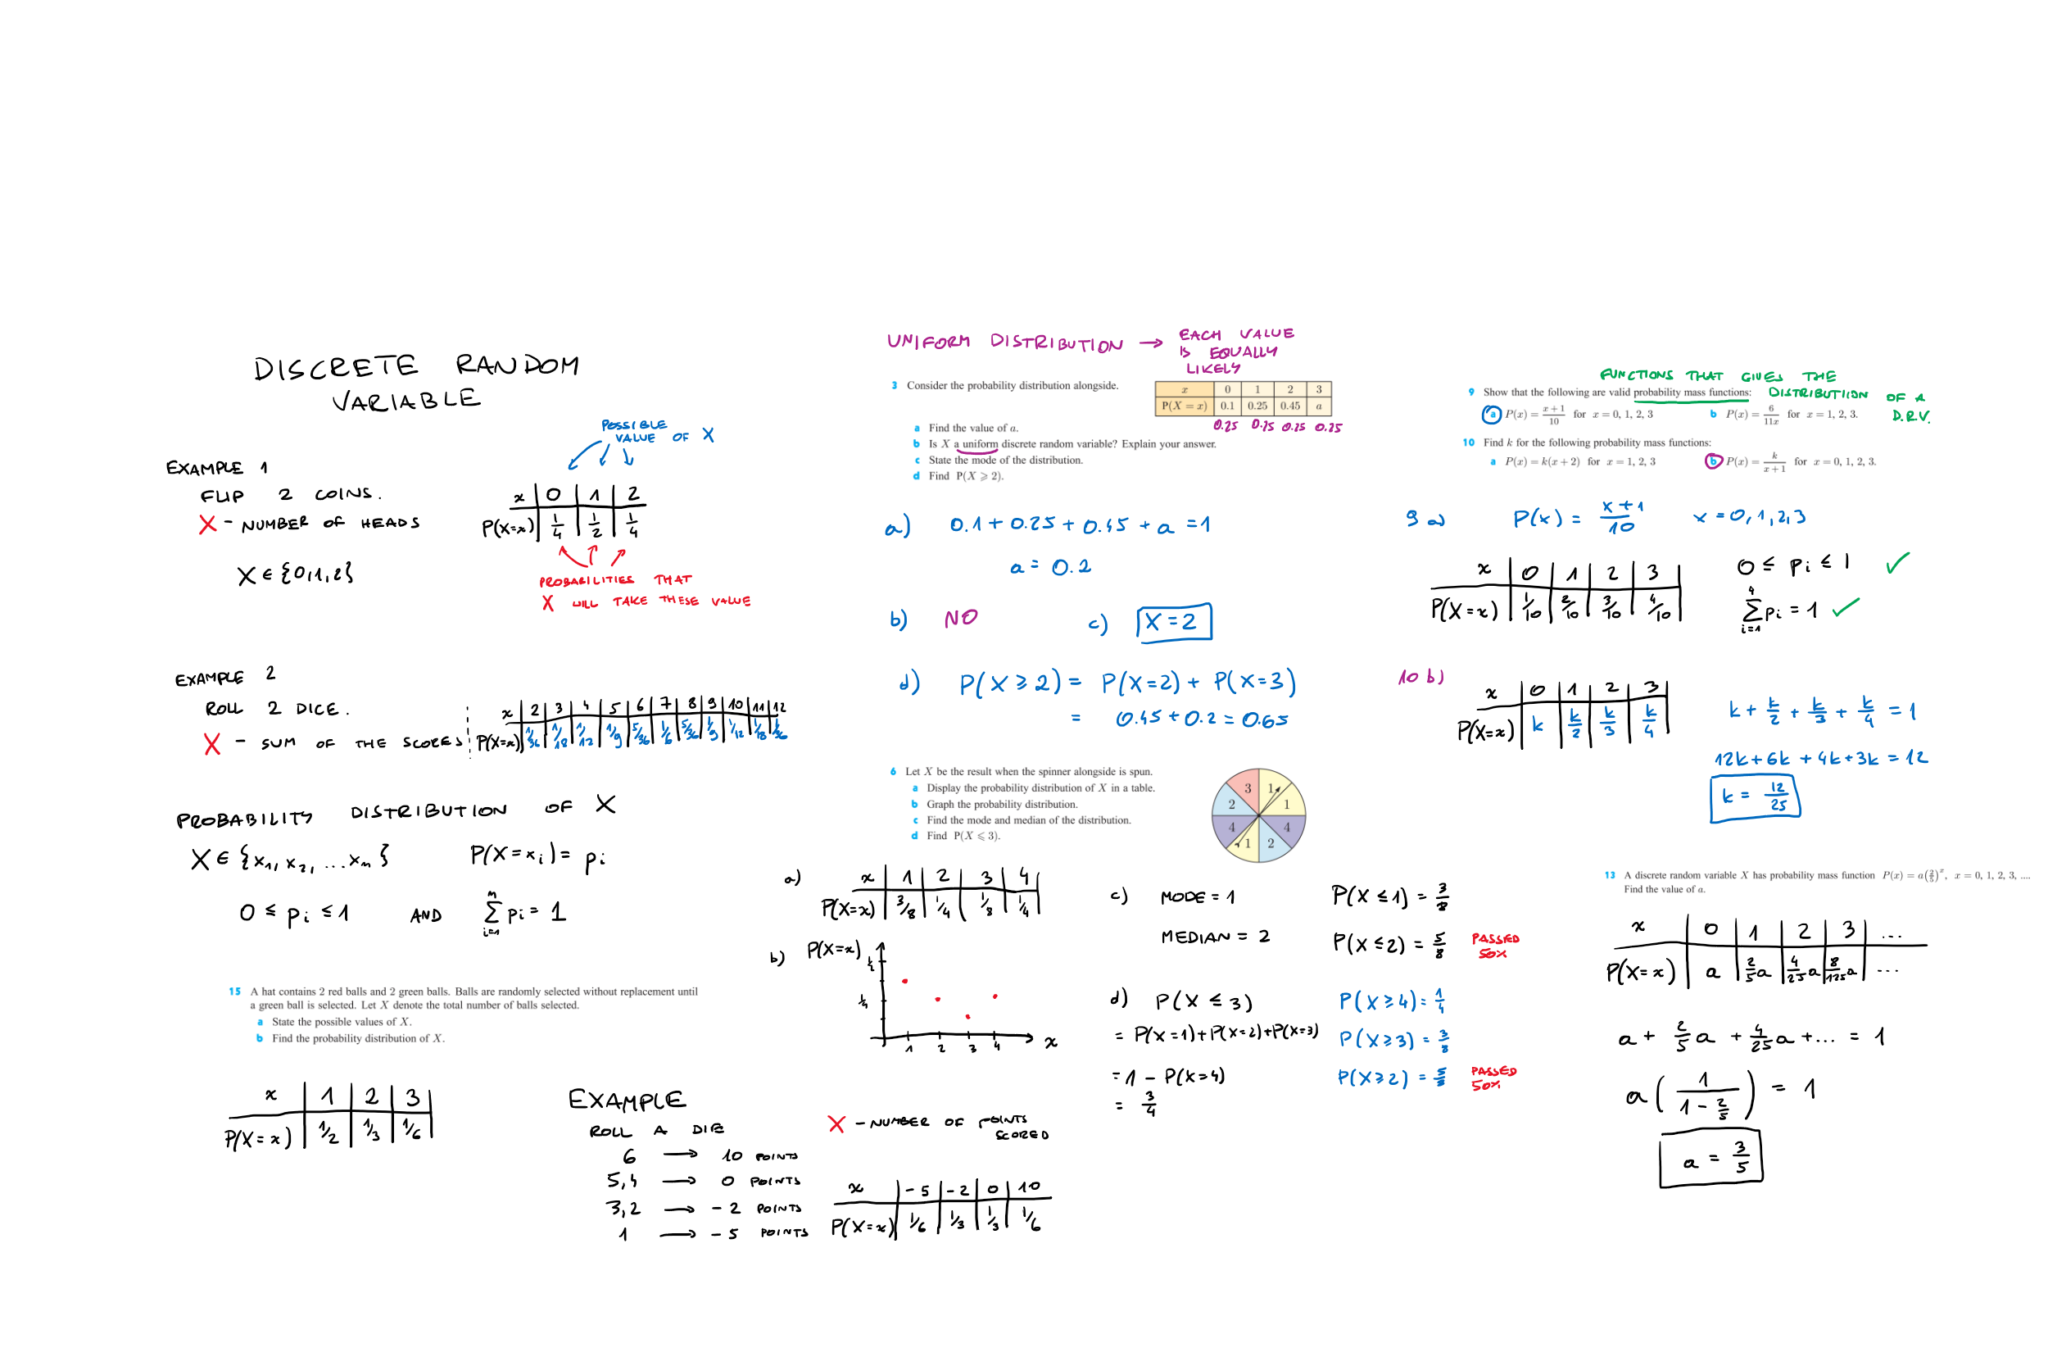 DISCRETE RANDOM
VARIABLE
EXAMPLE 1
FLIP 2 COINS.
X - NUMBER OF HEADS
X ∈ {0,1,2}
POSSIBLE
VALUE OF X
x 0 1 2
P(X=x) 1/4 1/2 1/4
PROBABILITIES THAT
X WILL TAKE THESE VALUE
EXAMPLE 2
ROLL 2 DICE.
X - SUM OF THE SCORES
x 2 3 4 5 6 7 8 9 10 11 12
P(X=x) 1/36 1/18 1/12 1/9 5/36 1/6 5/36 1/9 1/12 1/18 1/36
PROBABILITY DISTRIBUTION OF X
X ∈ {x₁, x₂, ... xₙ} P(X=xᵢ) = pᵢ
0 ≤ pᵢ ≤ 1 AND Σ (i=1 to n) pᵢ = 1
15 A hat contains 2 red balls and 2 green balls. Balls are randomly selected without replacement until
a green ball is selected. Let X denote the total number of balls selected.
a State the possible values of X.
b Find the probability distribution of X.
x 1 2 3
P(X=x) 1/2 1/3 1/6
EXAMPLE
ROLL A DIE
6 → 10 POINTS
5,4 → 0 POINTS
3,2 → -2 POINTS
1 → -5 POINTS
X - NUMBER OF POINTS
SCORED
x -5 -2 0 10
P(X=x) 1/6 1/3 1/3 1/6
UNIFORM DISTRIBUTION → EACH VALUE
IS EQUALLY
LIKELY
3 Consider the probability distribution alongside.
x 0 1 2 3
P(X = x) 0.1 0.25 0.45 a
0.25 0.25 0.25 0.25
a Find the value of a.
b Is X a uniform discrete random variable? Explain your answer.
c State the mode of the distribution.
d Find P(X ⩾ 2).
a) 0.1 + 0.25 + 0.45 + a = 1
a = 0.2
b) NO c) X = 2
d) P(X ≥ 2) = P(X=2) + P(X=3)
= 0.45 + 0.2 = 0.65
6 Let X be the result when the spinner alongside is spun.
a Display the probability distribution of X in a table.
b Graph the probability distribution.
c Find the mode and median of the distribution.
d Find P(X ⩽ 3).
3 1
2 1
4 4
1 2
a) x 1 2 3 4
P(X=x) 3/8 1/4 1/8 1/4
b) P(X=x)
1/2
1/4
1 2 3 4 x
c) MODE = 1 P(X ≤ 1) = 3/8
MEDIAN = 2 P(X ≤ 2) = 5/8 PASSED
50%
d) P(X ≤ 3) P(X ≥ 4) = 1/4
= P(X=1)+P(X=2)+P(X=3) P(X ≥ 3) = 3/8
= 1 - P(X=4) P(X ≥ 2) = 5/8 PASSED
50%
= 3/4
FUNCTIONS THAT GIVES THE
DISTRIBUTIION OF A
D.R.V.
9 Show that the following are valid probability mass functions:
a P(x) = (x+1)/10 for x = 0, 1, 2, 3 b P(x) = 6/(11x) for x = 1, 2, 3.
10 Find k for the following probability mass functions:
a P(x) = k(x + 2) for x = 1, 2, 3 b P(x) = k/(x+1) for x = 0, 1, 2, 3.
9 a) P(x) = (x+1)/10 x = 0,1,2,3
x 0 1 2 3
P(X=x) 1/10 2/10 3/10 4/10
0 ≤ pᵢ ≤ 1 ✓
Σ (i=1 to 4) pᵢ = 1 ✓
10 b)
x 0 1 2 3
P(X=x) k k/2 k/3 k/4
k + k/2 + k/3 + k/4 = 1
12k + 6k + 4k + 3k = 12
k = 12/25
13 A discrete random variable X has probability mass function P(x) = a(2/5)ˣ, x = 0, 1, 2, 3, ....
Find the value of a.
x 0 1 2 3 ...
P(X=x) a 2/5 a 4/25 a 8/125 a ...
a + 2/5 a + 4/25 a + ... = 1
a (1/(1 - 2/5)) = 1
a = 3/5